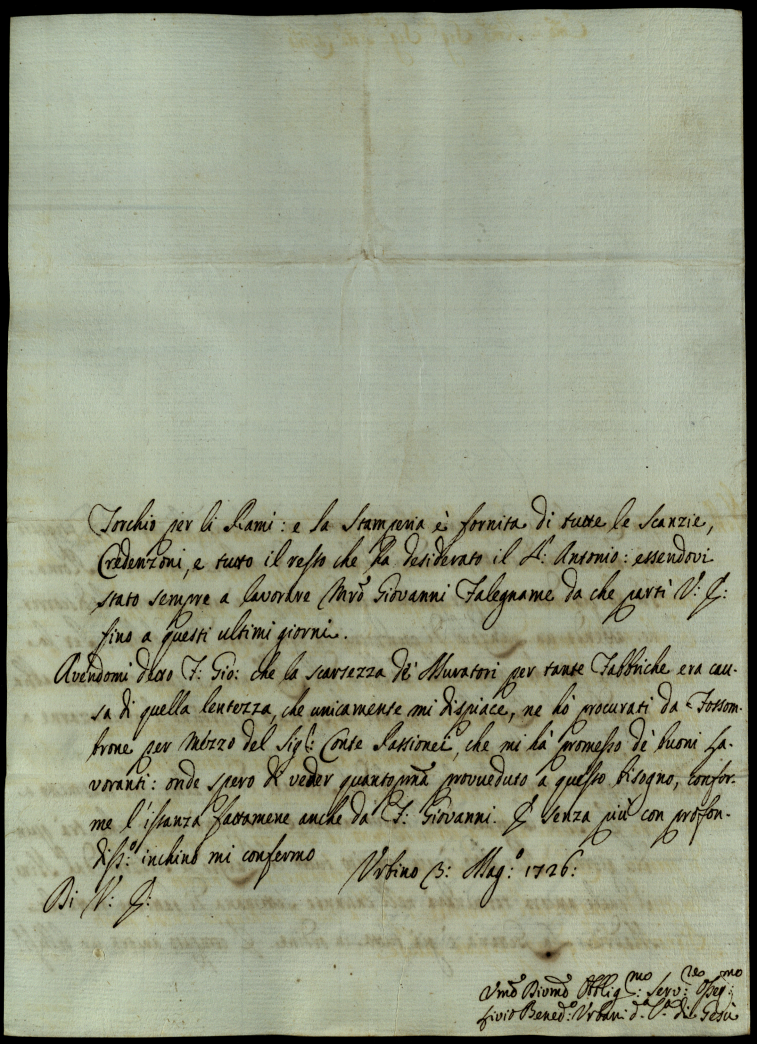 Torchio per li Rami: e la Stamperia è fornita di tutte le Scanzie,
Credenzoni, e tutto il resto che ha desiderato il S.r Antonio: essendovi
stato sempre a lavorare Mro Giovanni Falegname da che partì V: E:
fino a questi ultimi giorni.
Avendomi detto F: Gio: che la scarsezza de' Muratori per tante Fabbriche era cau-
sa di quella lentezza, che unicamente mi dispiace, ne hò procurati da Fossom-
brone per mezzo del Sig.r: Conte Passionei, che mi hà promesso de' buoni La-
voranti: onde spero di veder quantopma provveduto a questo bisogno, confor-
me l'istanza fattamene anche da F: Giovanni. E senza più con profon-
diss:o inchino mi confermo
Urbino 3: Mag:o 1726:
Di V: E:
Umo Divmo Obblig:mo Serv:re Osseq:mo
Livio Bened:o Urbani d.a C.a di Gesù